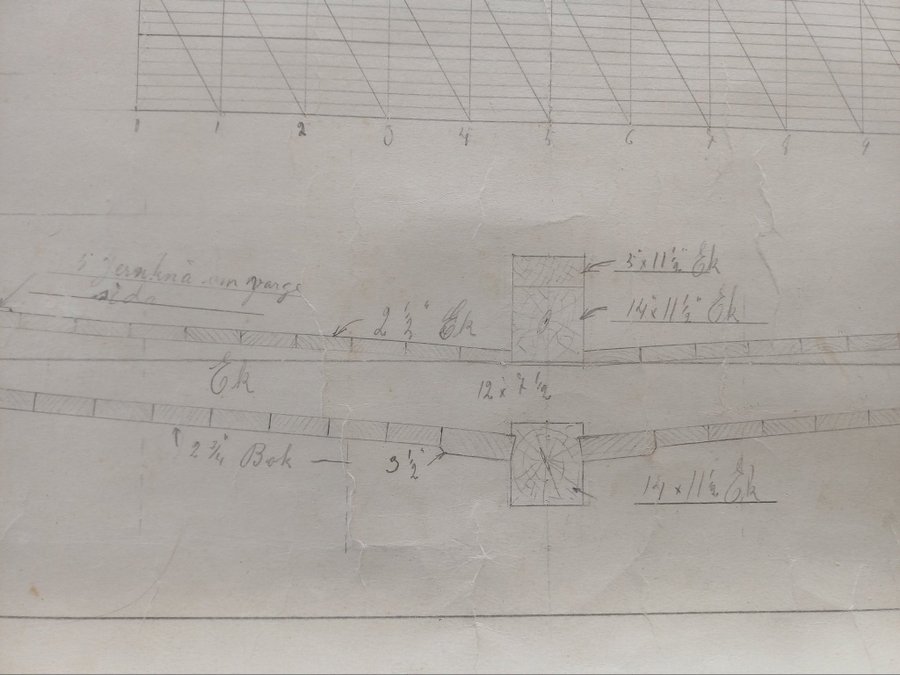 1 1 2 3 4 5 6 7 8 9
5" Jernknä om varge
sida
5" x 11 1/2" Ek
14" x 11 1/2" Ek
2 1/2" Ek
Ek
12 x 7 1/2
2 3/4" Bok
3 1/2"
14 x 11 1/2 Ek